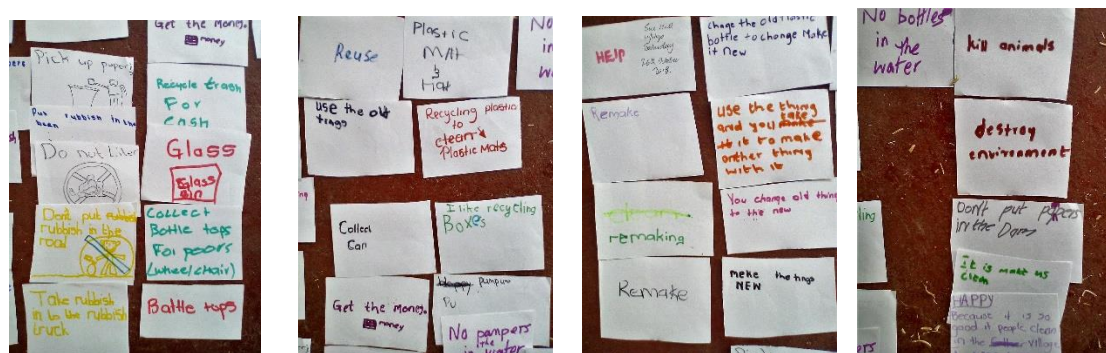 Get the money.
money
Pick up papers
Put rubbish in the
Recycle trash
For
Cash
Do not litter
Glass
Glass
Don't put rubbish
rubbish in the
road
Collect
Bottle tops
For poors
(wheel/chair)
Take rubbish
in to the rubbish
truck
Battle tops
Reuse
Plastic
Mat
&
Hat
No
in
use the old
Recycling plastic
to
clean
Plastic Mats
Collect
Can
I like recycling
Boxes
Get the money.
money
No pampers
in the water
HELP
change the old plastic
bottle to change Make
it new
Remake
use the thing
and you take
it to make
onther thing
with it
remaking
You change old thing
to the new
Remake
meke the tings
NEW
No bottles
in the
water
kill animals
destroy
environment
Don't put papers
in the Dam
It is make us
clem
HAPPY
Because it is so
good if people clean
in the village